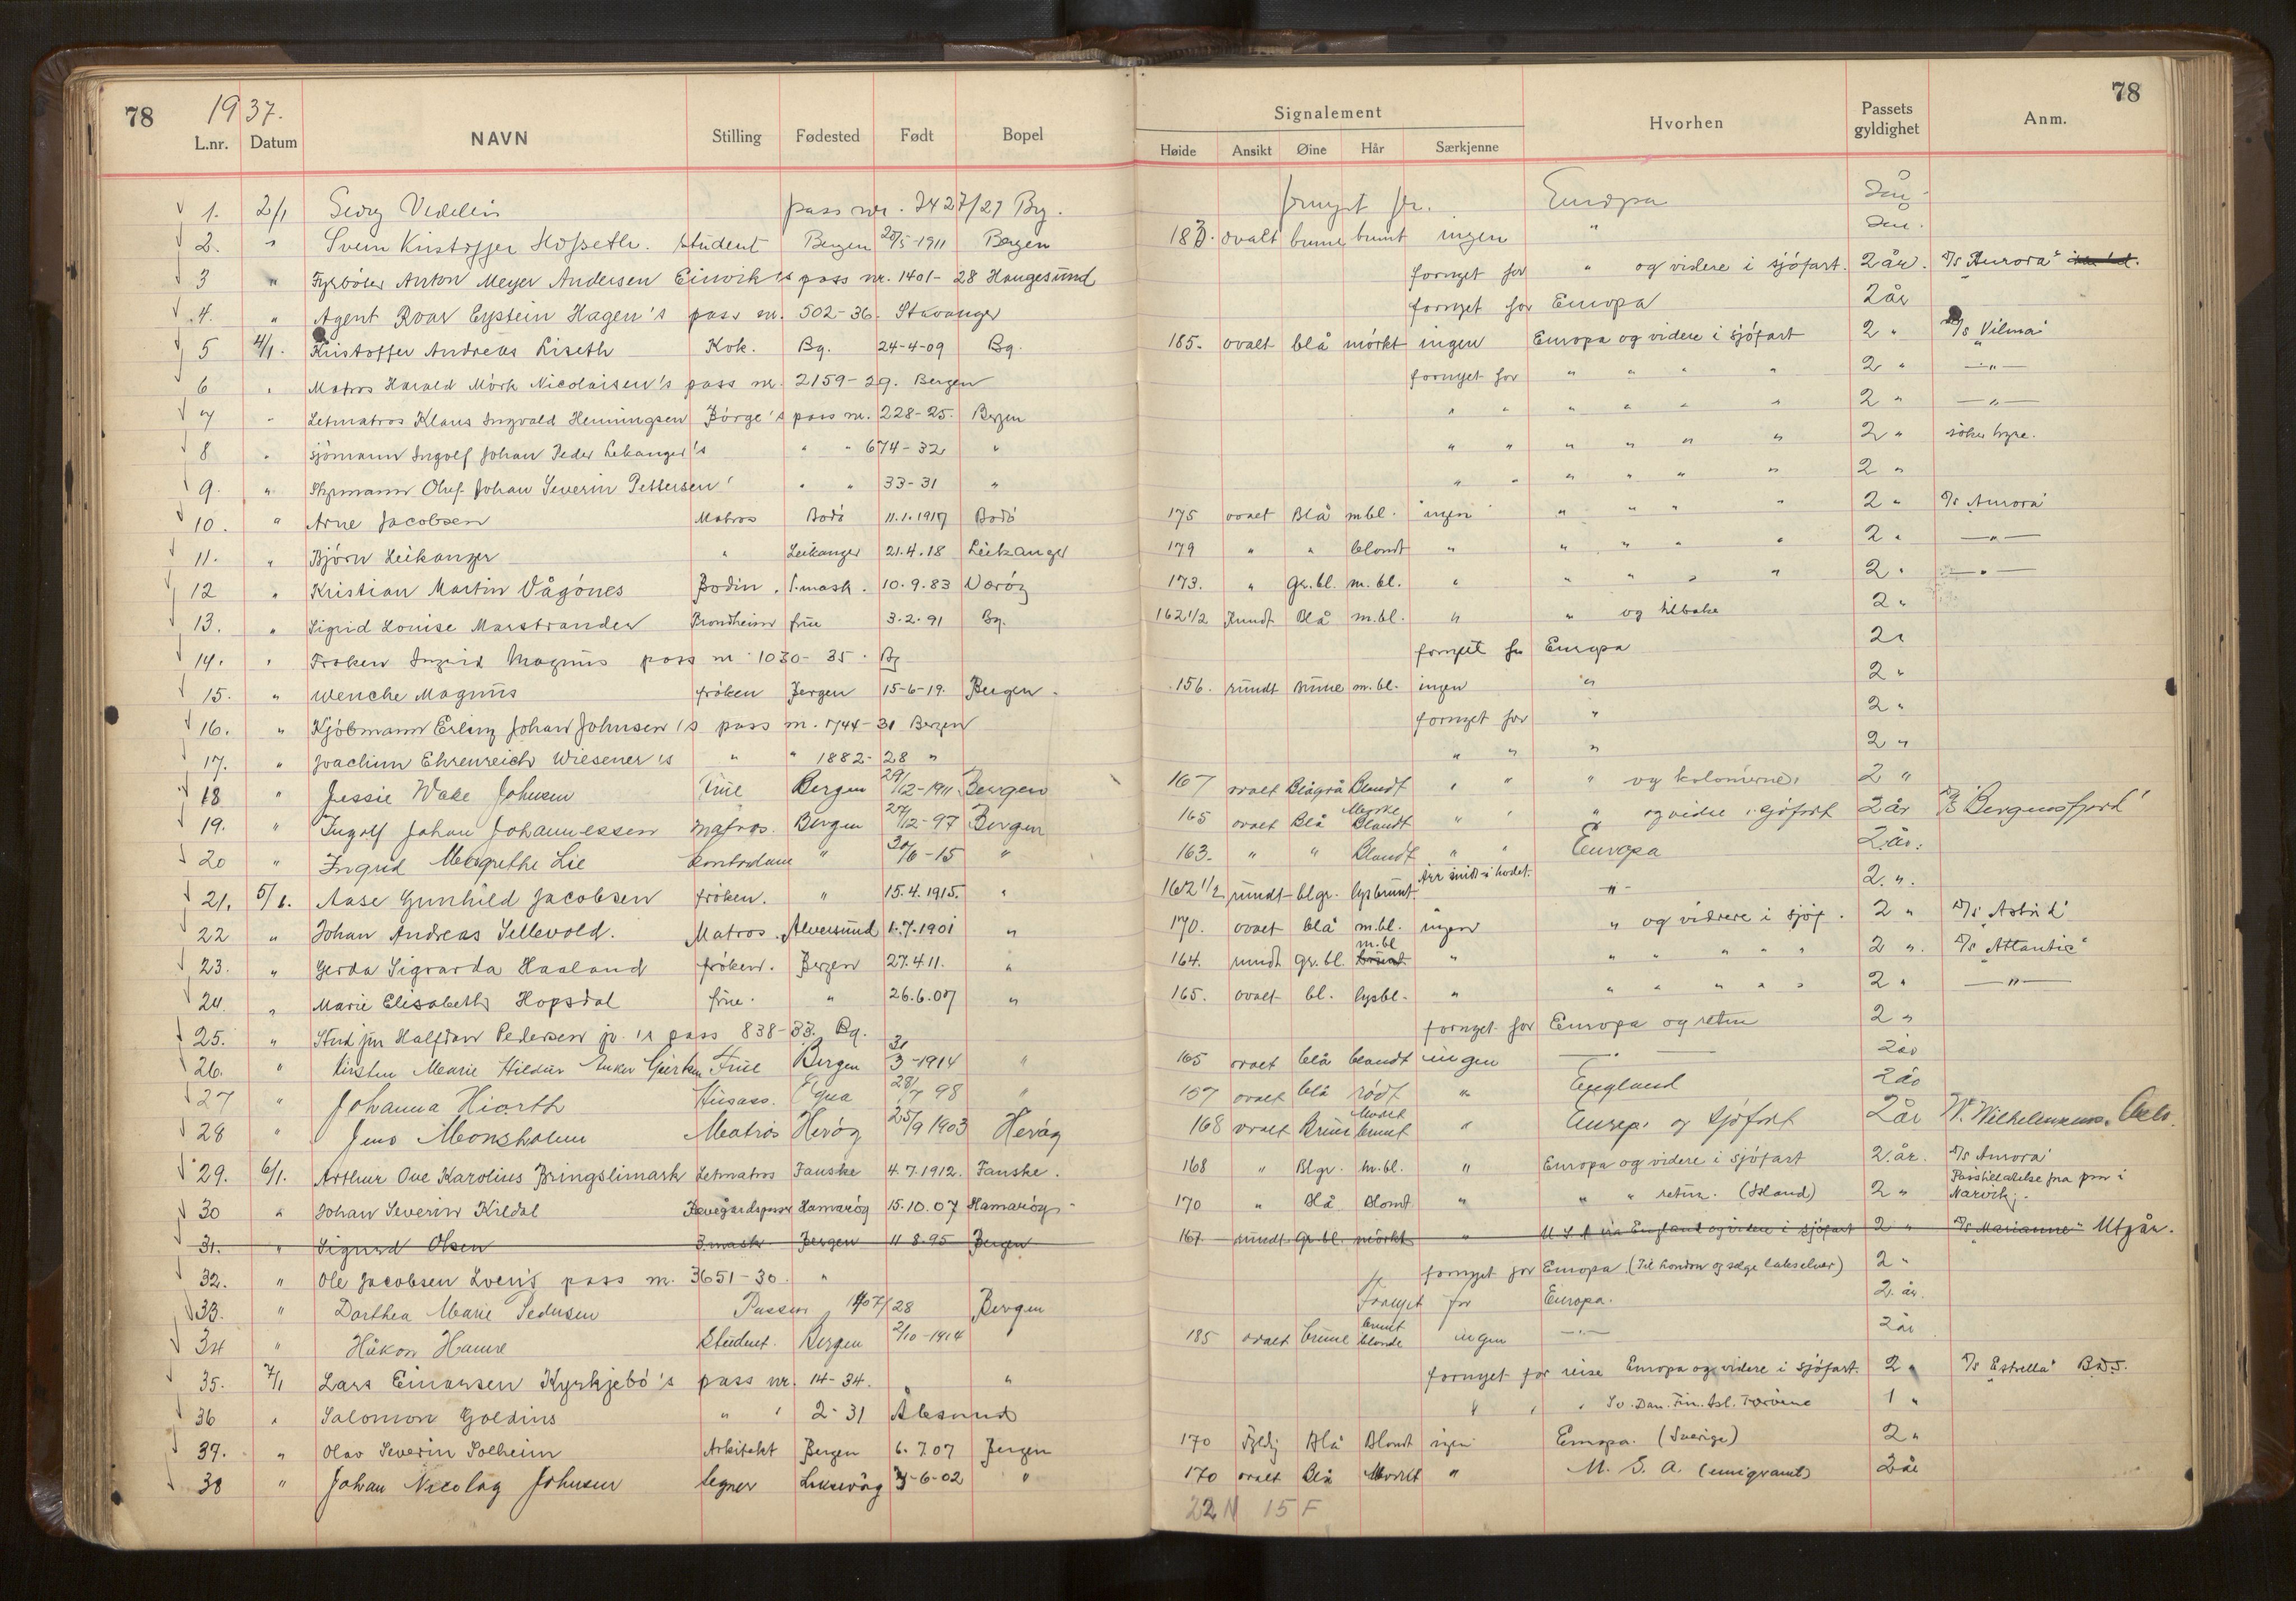 78 1937. 78
Signalement
L.nr. Datum NAVN Stilling Fødested Født Bopel Høide Ansikt Øine Hår Særkjenne Hvorhen Passets gyldighet Anm.
1. 2/1 Georg Vedeler pass nr. 3427/27 Bg. fornyet for Europa 2 år
2. " Svein Kristoffer Hofseth. student Bergen 25/5-1911 Bergen 183. ovalt brune brunt ingen " 2 år.
3 " Fyrbøter Anton Meyer Andersen Einvik's pass nr. 1401-28 Haugesund fornyet for " og videre i sjøfart. 2 år. D/S "Aurora"
4. " Agent Roar Eystein Hagen's pass nr. 502-36. Stavanger fornyet for Europa 2 år
5 4/1. Kristoffer Andreas Liseth Kok. Bg. 24-4-09 Bg. 185. ovalt blå mörkt ingen Europa og videre i sjöfart 2 " D/S Vilma"
6 " Matros Harald Mörk Nicolaisen's pass nr. 2159-29. Bergen fornyet for " " " " 2 " —"—
7 " Letmatros Klaus Ingvald Henningsen Börge's pass nr. 228-25. Bergen " " " " " " 2 " —"—
8 " Sjömann Ingolf Johan Peder Leikanger's " " 674-32 " " " " " " " 2 " söker hyre.
9. " Styrmann Oluf Johan Severin Pettersen' " " 33-31 " " " " " " " 2 "
10. " Arne Jacobsen Matros Bodö 11.1.1917 Bodö 175 ovalt Blå m bl. ingen " " " " 2 " D/S Aurora
11. " Björn Leikanger " Leikanger 21.4.18 Leikanger 179 " " blondt " " " " " 2 " —"—
12 " Kristian Martin Vågönes Bodin. 1.mask. 10.9.83 Veröy 173. " Gr.bl. m.bl. " " " " " 2 " —"—
13. " Sigrid Louise Marstrander Trondheim frue 3.2.91 Bg. 162 1/2 Rundt Blå m.bl. " " og tilbake 2 "
14. " Frøken Ingrid Magnus pass nr 1030-35. Bg fornyet for Europa 2 "
15. " Wenche Magnus fröken Bergen 15-6-19. Bergen. 156. rundt brune m.bl. ingen " 2 "
16. " Kjöbmann Erling Johan Johnsen's pass nr. 1744-31 Bergen fornyet for " 2 "
17. " Joachim Ehrenreich Wiesener's " " 1882-28 " " " " 2 "
18 " Jessie Wake Johnsen Frue Bergen 29/12-1911 Bergen 167 ovalt Blågrå Blondt " " " og kolonierne. 2 "
19. " Ingolf Johan Johannessen Matros. Bergen 27/12-97 Bergen 165 ovalt Blå Mørke Blondt " " " og videre i sjöfart 2 år D/S Bergensfjord"
20 " Ingrid Margrethe Lie Kontordame " 20/6-15 " 163. " " Blondt " " Europa 2 år.
21. 5/1. Aase Gunhild Jacobsen fröken. " 15.4.1915. " 162 1/2 rundt blgr. lysbrunt. Arr midt i hodet. —"— 2. ".
22 " Johan Andreas Sellevold. Matros. Alversund 1.7.1901 " 170. ovalt blå m.bl. ingen " og videre i sjöf. 2 " D/S "Astrid"
23. " Gerda Sigvarda Haaland fröken. Bergen 27.4.11. " 164. rundt gr.bl. m.bl brunt " " " " " 2 ". D/S "Atlantic"
24. " Marie Elisabeth Hopsdal frue. " 26.6.07 " 165. ovalt bl. lysbl. " " " " " " 2 " —"—
25. " Stud jur Halfdan Pedersen jr. 's pass 838-33. Bg. fornyet for Europa og retur 2 "
26. " Kirsten Marie Hildur Anker Gjerken Frue Bergen 31/3-1914 " 165 ovalt blå blondt ingen —.— 2 år
27 " Johanna Hiorth Husass. 28/7 98 " 157 ovalt blå rödt " England 2 år
28 " Jens Monsholm Matros Heröy 25/9 1903 Heröy 168 ovalt Brune Mörkt brunt " Europa og Sjöfart 2 år W. Wilhelmsens. Oslo.
29. 6/1. Arthur Ove Karolius Bringslimark Letmatros Fauske 4.7.1912. Fauske. 168 " Blgr. m.bl. " Europa og videre i sjöfart 2. år. D/S Aurora"
30 " Johan Severin Kildal Hamaröy 15.10.07 Hamaröy 170 " Blå Blondt " " " retur. (Island) 2 " Passtillatelse fra pm i Narvik.
31. " Sigurd Olsen 3.mask Bergen 11 8.95 Bergen 167. rundt Gr.bl. mörkt " U S A via England og videre i sjöfart 2 " D/S "Marianne" Utgår.
32. " Ole Jacobsen Loen's pass nr. 3651-30. " fornyet for Europa. (Til London og selge lakselver) 2 "
33. " Dorthea Marie Pedersen Passnr. 1407/28 Bergen Fornyet for Europa. 2 år.
34 " Håkon Hamre Student. Bergen 2/10-1914 " 185 ovalt brune brunt blonde ingen —.— 2 år
35. 7/1 Lars Einarsen Kyrkjebö's pass nr. 14-34. " fornyet for reise Europa og videre i sjöfart. 2 " D/S "Estrella" B.D.S.
36 " Salomon Goldins " " 2-31 Ålesund " " " Sv. Dan. Fin. Isl. Færöene 1 "
37. " Olav Severin Solheim Arkitekt Bergen 6.7.07 Bergen 170 Fyldig Blå Blondt ingen Europa. (Sverige) 2 "
38 " Johan Nicolay Johnsen tegner Laksevåg 3-6-02 " 170 ovalt Blå Mörkt " U. S. A. (emigrant) 2 år
22 N 15 F